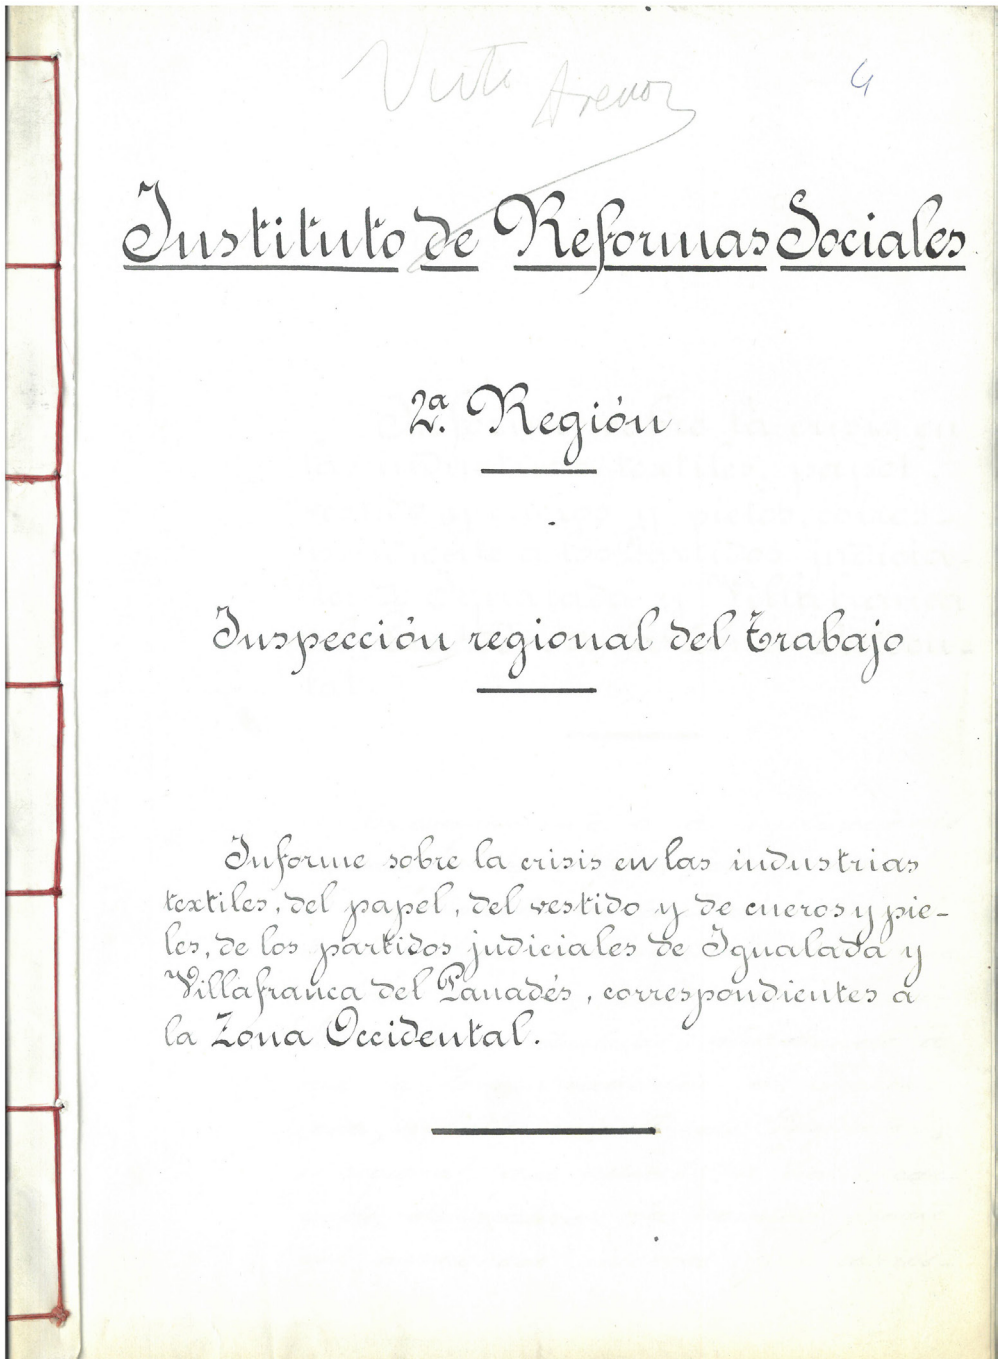 Visto
4
Instituto de Reformas Sociales
2ª. Región
Inspección regional del Trabajo
Informe sobre la crisis en las industrias
textiles, del papel, del vestido y de cueros y pie-
les, de los partidos judiciales de Igualada y
Villafranca del Panadés, correspondientes á
la Zona Occidental.